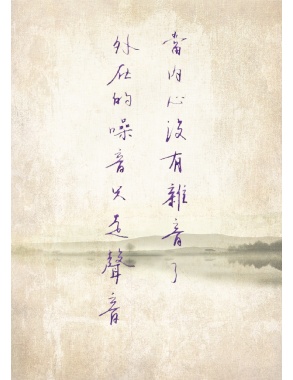 當內心沒有雜音了
外在的噪音只是聲音